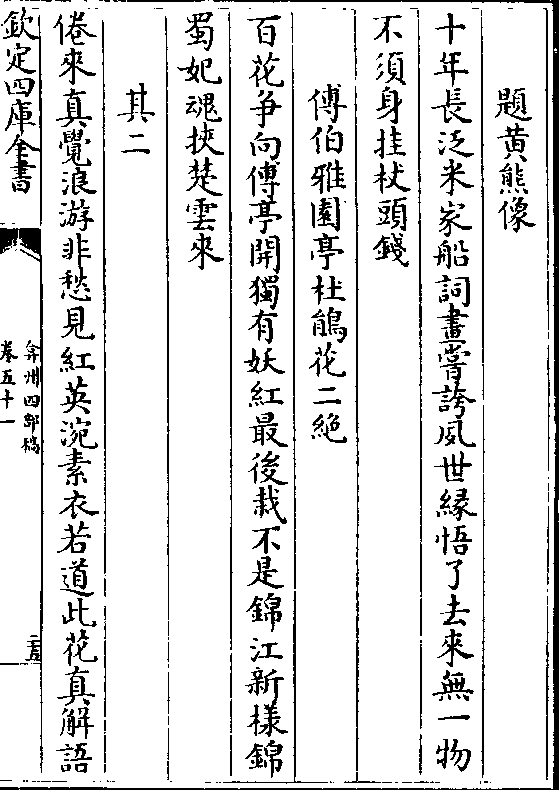 題黄熊像
十年長泛米家船詞畫嘗誇風世縁悟了去來無一物
不須身挂杖頭錢
傅伯雅園亭杜鵑花二絶
百花争向傅亭開獨有妖紅最後栽不是錦江新様錦
蜀妃魂挾楚雲來
其二
倦來真覺浪游非愁見紅英涴素衣若道此花真解語
欽定四庫全書
弇州四部稿
卷五十一
二五